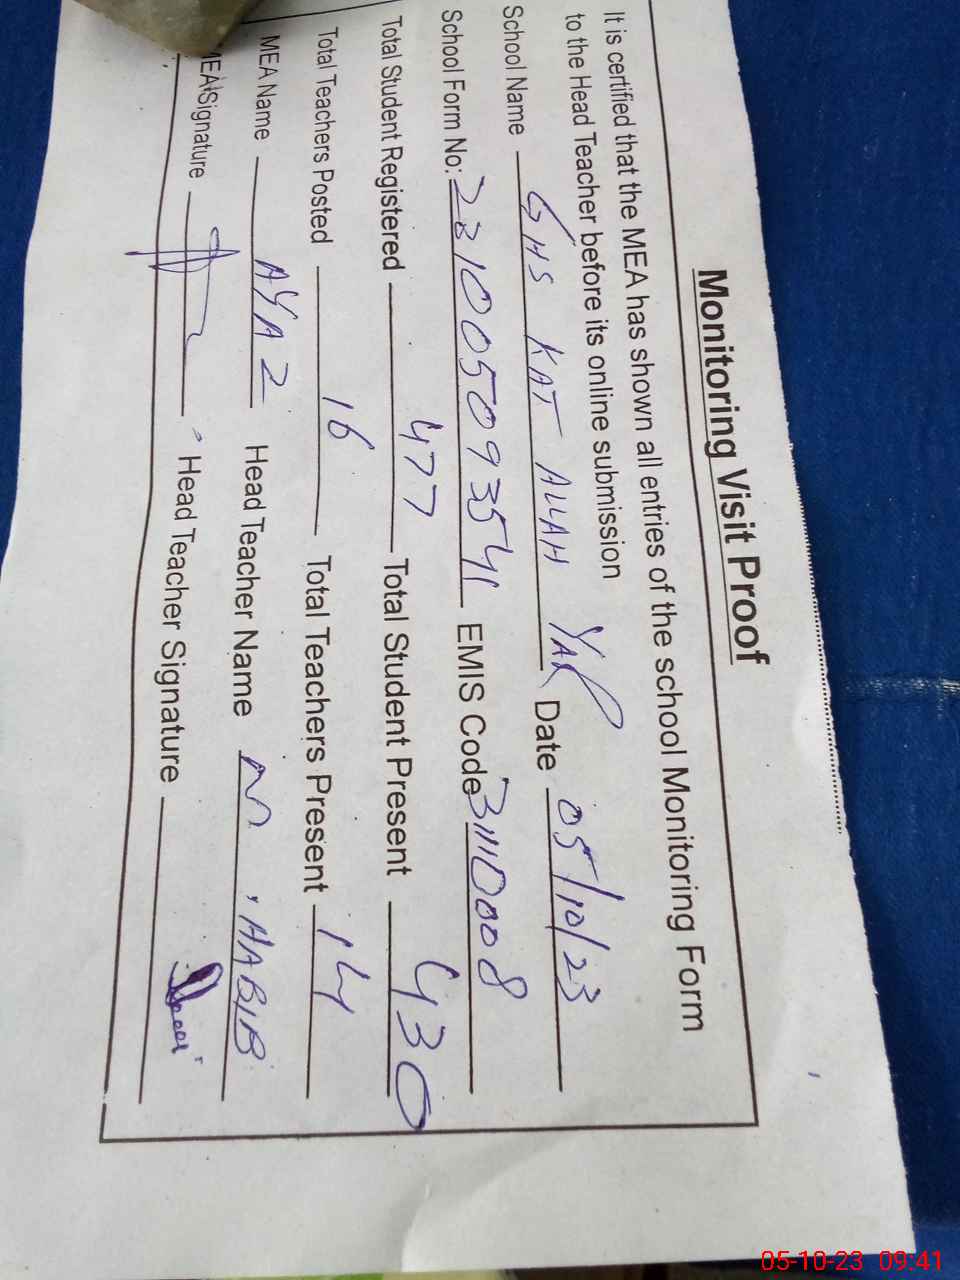 Monitoring Visit Proof
It is certified that the MEA has shown all entries of the school Monitoring Form
to the Head Teacher before its online submission
School Name GHS KAT ALLAH YAR Date 05/10/23
School Form No: 23100509354 EMIS Code 31110008
Total Student Registered 477 Total Student Present 430
Total Teachers Posted 16 Total Teachers Present 14
MEA Name AYAZ Head Teacher Name M. HABIB
MEA Signature Head Teacher Signature
05-10-23 09:41